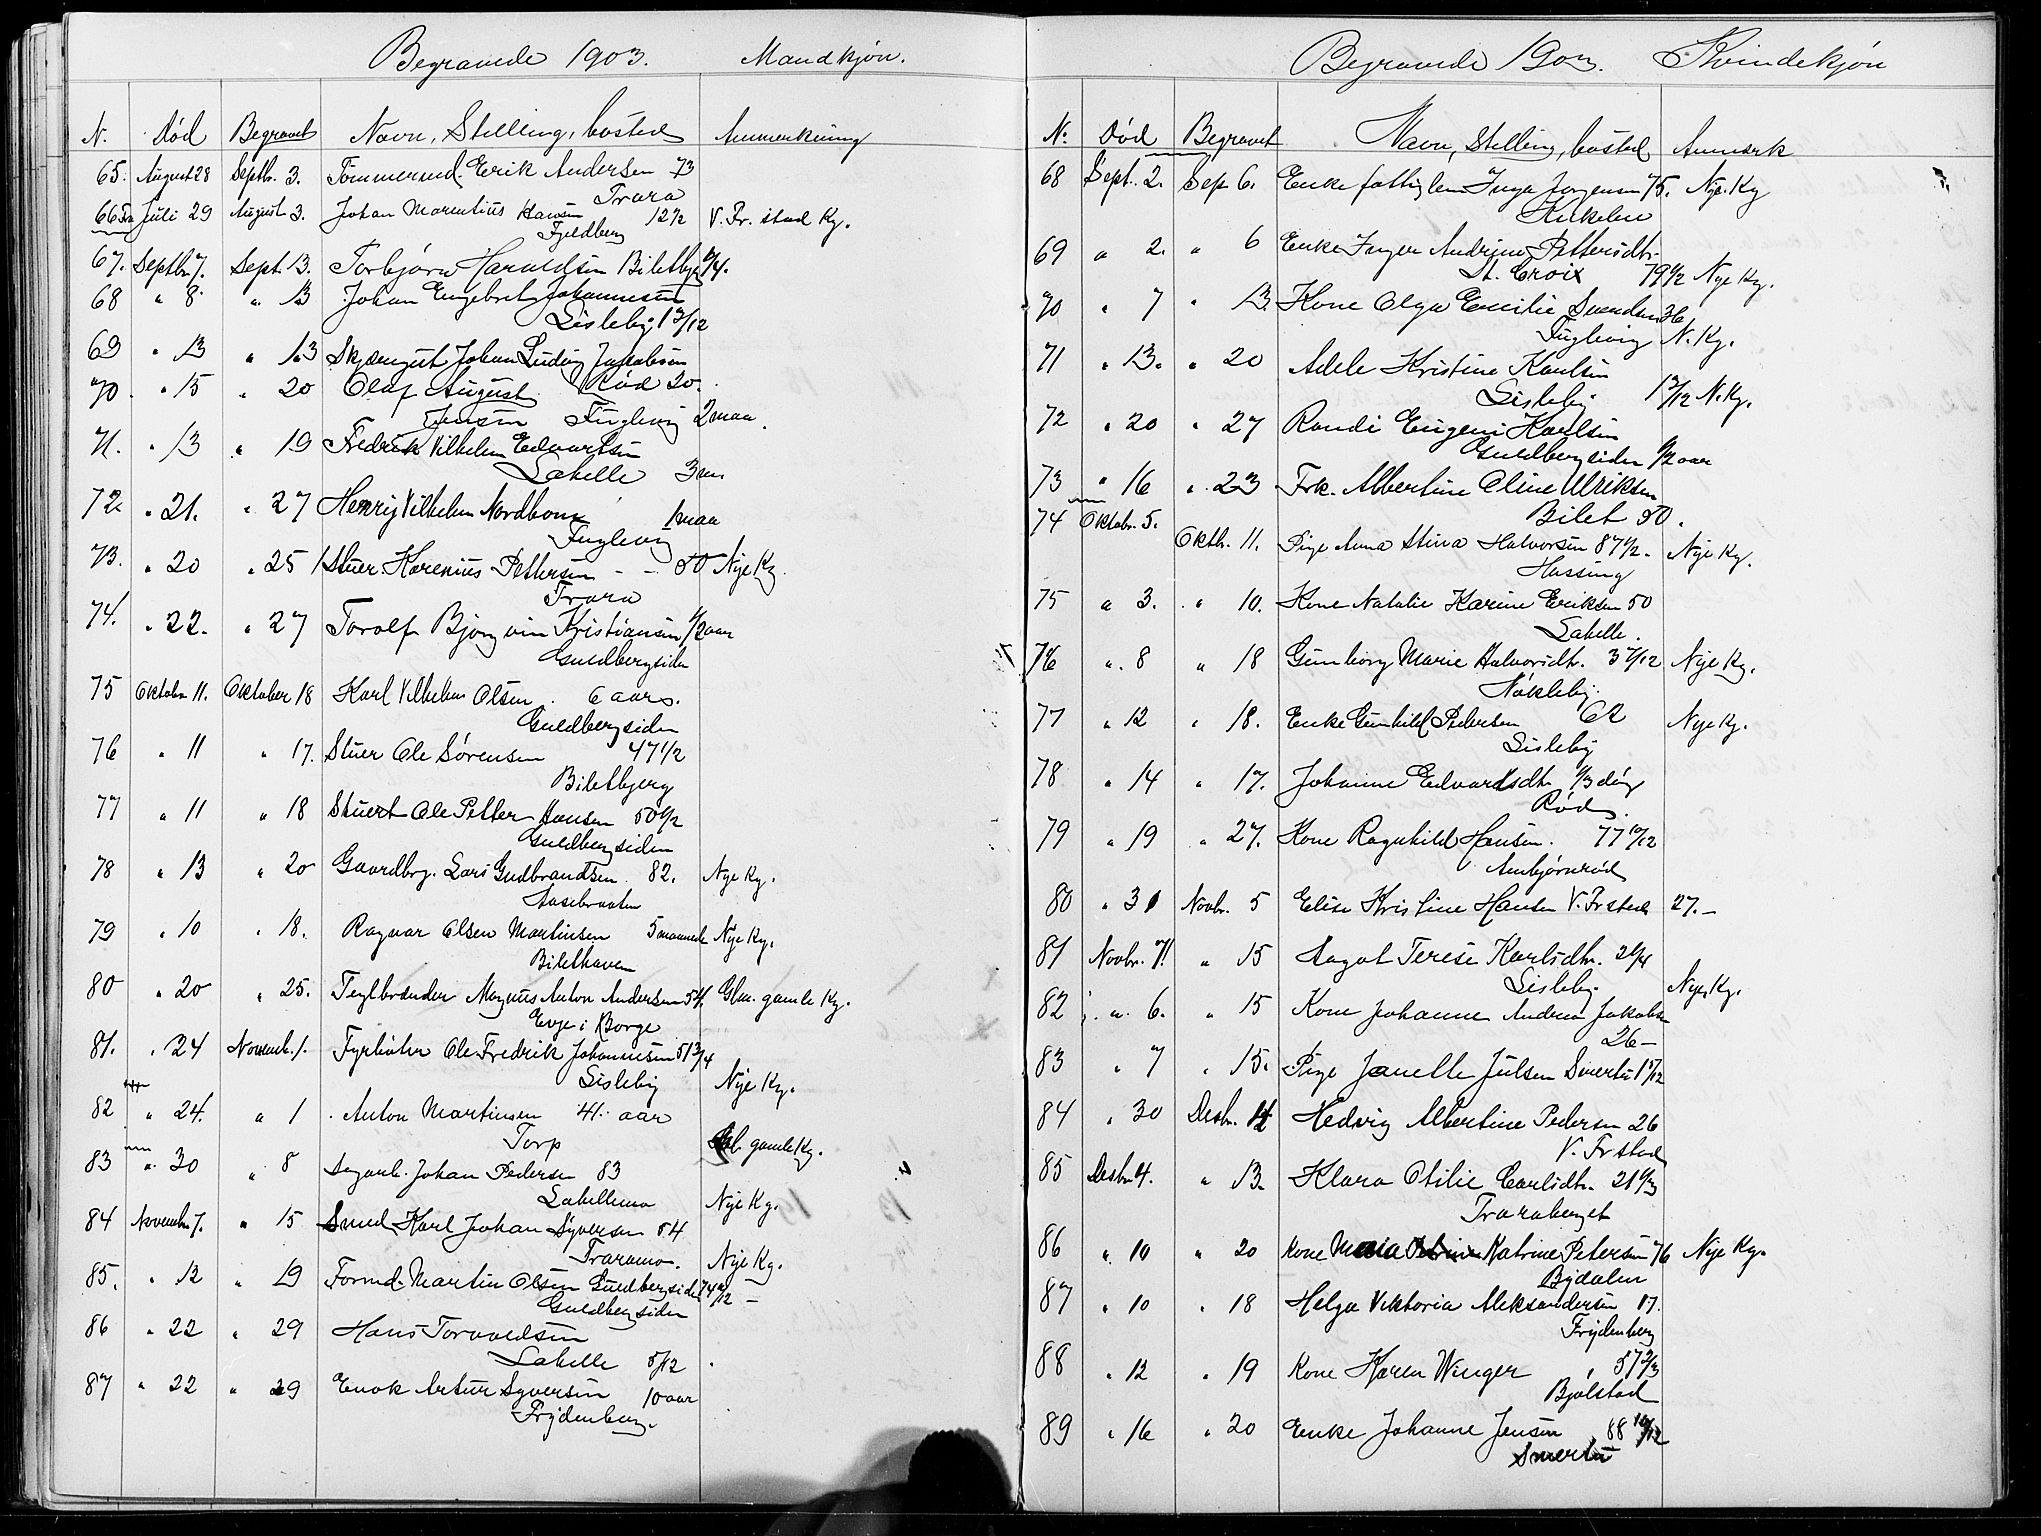 Begravede 1903. Mandkjøn.
N. Død Begravet Navn, Stilling, bosted Anmerkning
65. August 28 Septbr. 3. Tømmermd. Erik Andersen 73
Trara
66 Fra Juli 29 August 3. Johan Marentius Hansen 12 1/2 V. Fr. stad Kg.
Fjeldberg
67. Septbr. 7. Sept. 13. Torbjørn Haraldsen Biletbjerg
68 " 8. " 13 Johan Engebret Johannesen
Lisleby 1
69 " 13 " 13 Skysgut Johan Ludvig Jakobsen
Rød 20.
70. " 15 " 20 Olaf August
Jensen Fuglevig 2 maa.
71. " 13 " 19 Fredrik Vilhelm Edvartsen
Labelle 3 m
72. " 21. " 27 Henrij Vilhelm Nordbom 1 maa
Fuglevig
73. " 20 " 25 Stuer. Karenius Pettersen - - 50 Nye Kg.
Trara
74. " 22. " 27 Torolf Bjørgvin Kristiansen 1/2 aar
Guldbergsiden
75 Oktober 11. Oktober 18 Karl Vilhelm Olsen. 6 aar.
Guldbergsiden
76 " 11 " 17. Stuer Ole Sørensen 47 1/2
Biletbjerg
77 " 11 " 18 Stuert Ole Petter Hansen 50 1/2
Guldbergsiden
78 " 13 " 20 Gaardbrg. Lars Gudbrandsen. 82. Nye Kg.
Aasebraaten
79 " 10 " 18. Ragnar Olsen Martinsen 5 maaneder Nye Kg.
Bilethaven
80 " 20 " 25. Teglbrænder Magnus Anton Andersen 54. Glm. gamle Kg.
Evje i Borge
81. " 24 Novemb. 1. Fyrbøter Ole Fredrik Johannesen 51 3/4
Lisleby Nye Kg.
82 " 24. " 1 Anton Martinsen 41. aar
Torp gamle Kg.
83 " 30 " 8 Johan Pedersen 83
Labellemo Nye Kg.
84 Novembr. 7. " 15 Smed Karl Johan Syversen 54
Traramo. Nye Kg.
85. " 12 " 19 Formd. Martin Olsen Guldbergsiden
Guldbergsiden
86 " 22 " 29 Hans Torvaldsen
Labelle 5/12
87 " 22 " 29 Enok Artur Syversen 10 aar
Frydenberg.
Begravede 1903. Kvindekjøn
N. Død Begravet Navn, Stilling, bosted Anmerk
68 Sept. 2. Sep 6. Enke fattiglem Inga Jørgensen 75. Nye. Kg
Kirkelien
69 " 2. " 6 Enke Inger Andrine Pettersdtr.
St. Croix 79 1/2 Nye Kg.
70 " 7 " 13. Kone Olga Emilie Svendsen 36
Fuglevig N. Kg.
71 " 13. " 20 Adele Kristine Karlsen
Lisleby N. Kg.
72 " 20 " 27 Randi Eugeni Karlsen
Guldbergsiden 1/2 aar
73 " 16 " 23 Frk. Albertine Oline Ulriksen
Bilet 50.
74 Oktobr. 5. Oktbr. 11. Pige Anna Stina Halvorsen 87 1/2. Nye Kg.
Hassing
75 " 3. " 10. Kone Natalie Karine Eriksen 50
Labelle.
76 " 8 " 18 Gunborg Marie Halvorsdtr. 3 7/12 Nye Kg.
Nøkleby.
77 " 12 " 18. Enke Gunhild Pedersen 62 Nye Kg.
Lisleby
78 " 14 " 17. Johanne Edvardsdtr.
Rød.
79 " 19 " 27. Kone Ragnhild Hansen. 77 10/12
Ambjørnrød
80 " 31 Novbr. 5 Elise Kristine Hansen V. Frstad 27. -
81 Novbr. 7. " 15 Aagot Terese Karlsdtr.
Lisleby. Nye Kg.
82 " 6. " 15 Kone Johanne Andrea Jakobsen
26 -
83 " 7 " 15. Pige Janelle Julsen Smertu
84 " 30 Desbr. 12 Hedvig Albertine Pedersen 26
V. Frstad
85 Desbr. 4. " 13. Klara Otilie Carlsdtr.
Traraberget
86 " 10 " 20 Kone Maria Katrine Petersen 76 Nye Kg.
Bydalen
87 " 10 " 18 Helga Viktoria Aleksandersen 17.
Frydenberg
88 " 12 " 19 Kone Karen Winger 57
Bjølstad
89 " 16 " 20 Enke Johanne Jensen 88 10/12
Smertu